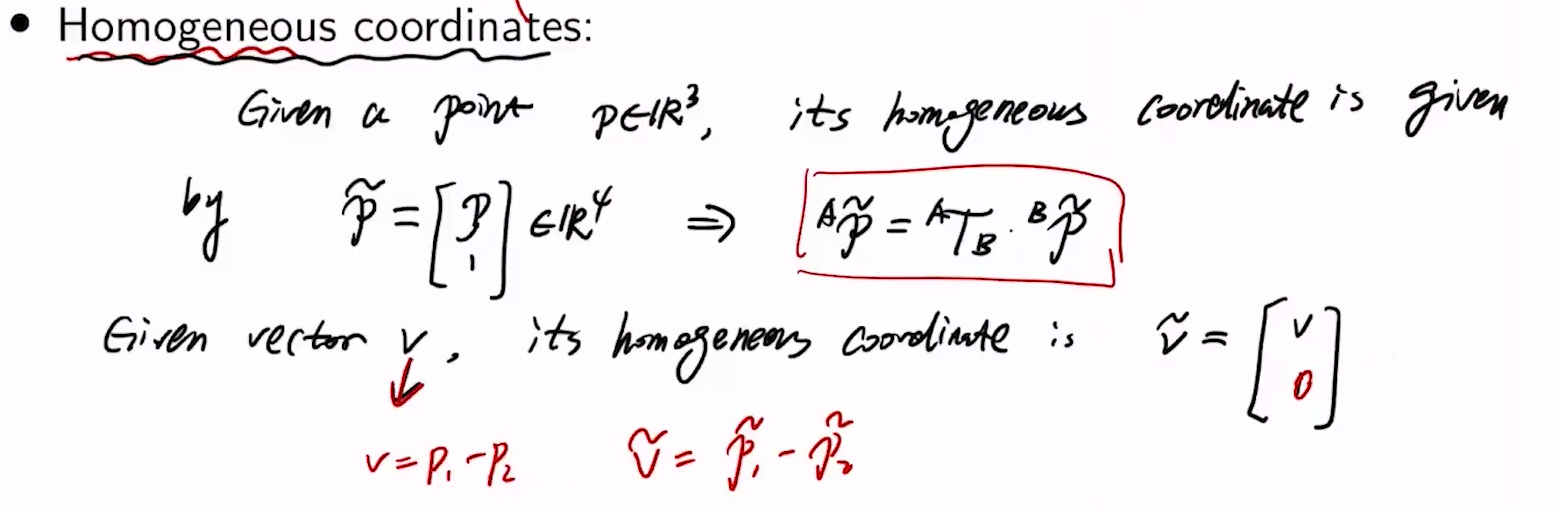 • Homogeneous coordinates:
Given a point p∈ℝ³, its homogeneous coordinate is given
by p̃ = [p 1] ∈ℝ⁴ ⇒ ᴬp̃ = ᴬT_B · ᴮp̃
Given vector v, its homogeneous coordinate is ṽ = [v 0]
v = p₁ - p₂ ṽ = p̃₁ - p̃₂